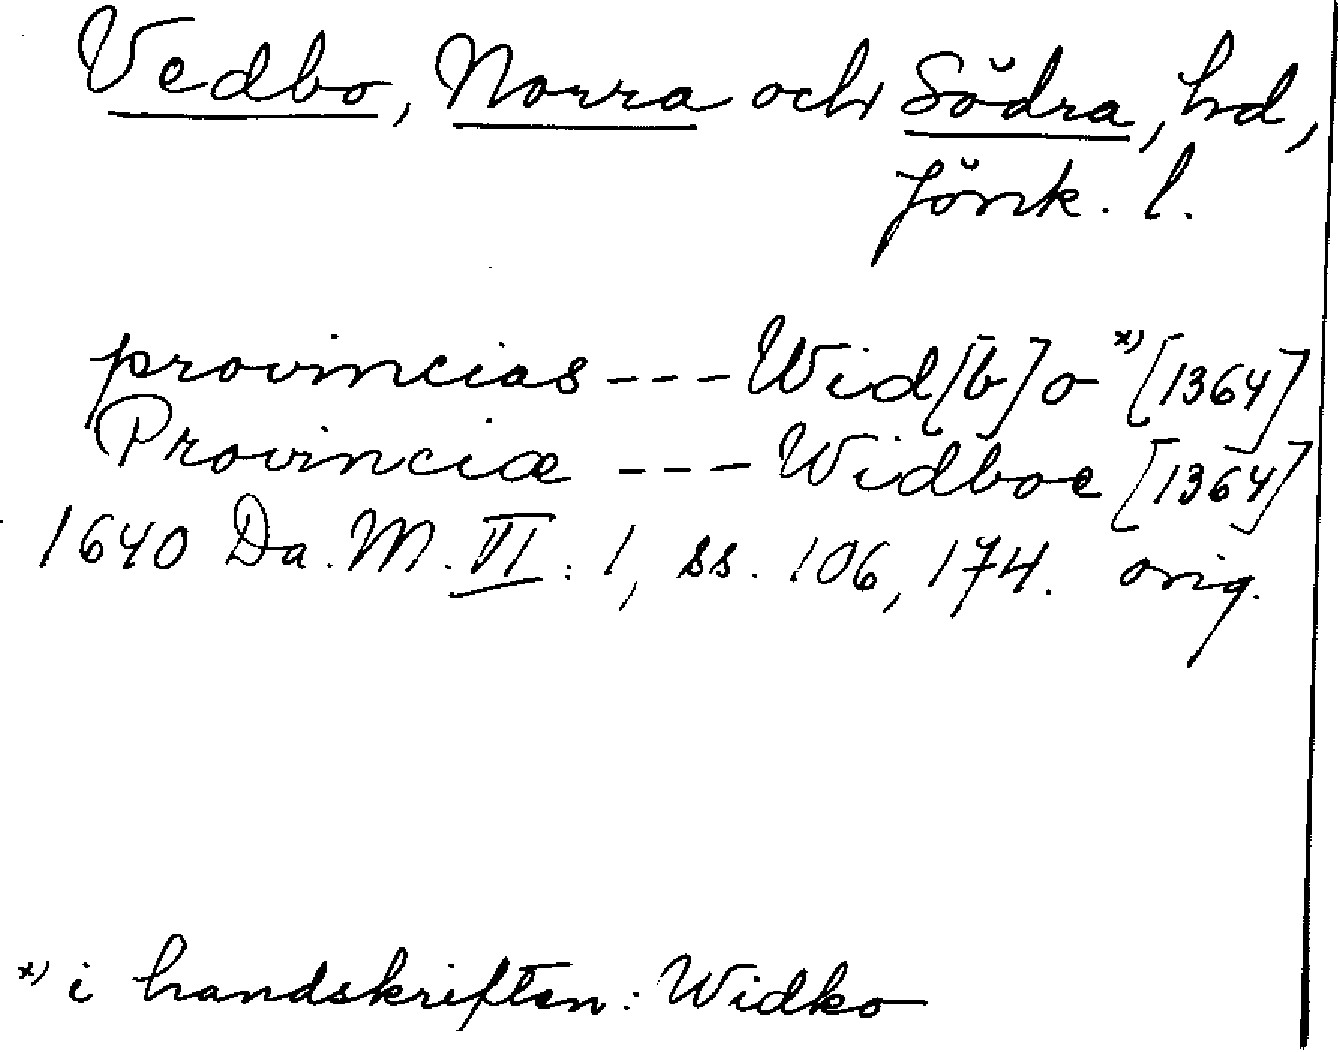 Vedbo, Norra och Södra, hd,
Jönk. l.
provincias --- Wid[b]o x) [1364]
Provinciæ --- Widboe [1364]
1640 Da. M. VI: 1, ss. 106, 174. orig.
x) i handskriften: Widko